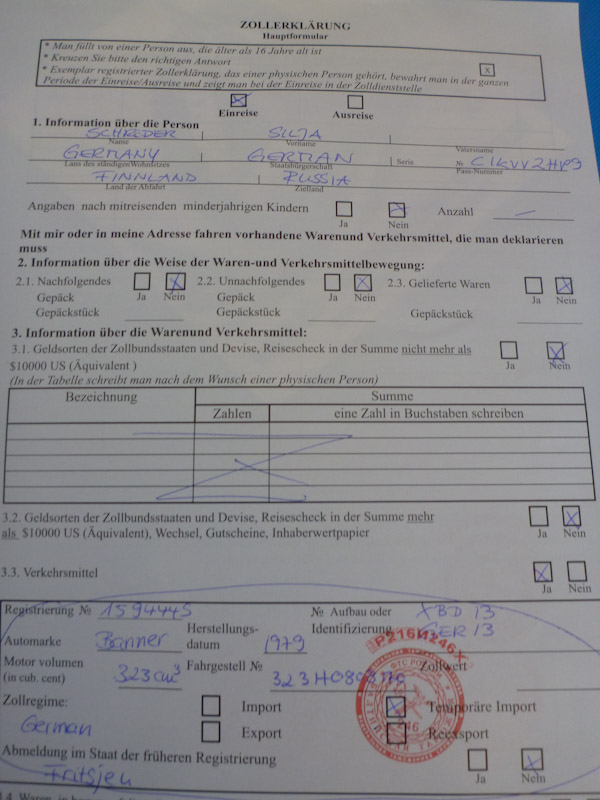 ZOLLERKLÄRUNG
Hauptformular
* Man füllt von einer Person aus, die älter als 16 Jahre alt ist
* Kreuzen Sie bitte den richtigen Antwort
* Exemplar registrierter Zollerklärung, das einer physischen Person gehört, bewahrt man in der ganzen
Periode der Einreise/Ausreise und zeigt man bei der Einreise in der Zolldienststelle
x
Einreise Ausreise
1. Information über die Person
SCHRÖDER SILJA
Name Vorname Vatersname
GERMANY GERMAN Serie № C1KVV2HP9
Lans des ständigenWohnsitzes Staatsbürgerschaft Pass-Nummer
FINNLAND RUSSIA
Land der Abfahrt Zielland
Angaben nach mitreisenden minderjährigen Kindern Ja Nein Anzahl –
Mit mir oder in meine Adresse fahren vorhandene Warenund Verkehrsmittel, die man deklarieren
muss
2. Information über die Weise der Waren-und Verkehrsmittelbewegung:
2.1. Nachfolgendes Ja Nein 2.2. Unnachfolgendes Ja Nein 2.3. Gelieferte Waren Ja Nein
Gepäck Gepäck
Gepäckstück Gepäckstück Gepäckstück
3. Information über die Warenund Verkehrsmittel:
3.1. Geldsorten der Zollbundsstaaten und Devise, Reisescheck in der Summe nicht mehr als
$10000 US (Äquivalent ) Ja Nein
(In der Tabelle schreibt man nach dem Wunsch einer physischen Person)
Bezeichnung Summe
Zahlen eine Zahl in Buchstaben schreiben
3.2. Geldsorten der Zollbundsstaaten und Devise, Reisescheck in der Summe mehr
als $10000 US (Äquivalent), Wechsel, Gutscheine, Inhaberwertpapier Ja Nein
3.3. Verkehrsmittel Ja Nein
Registrierung № 1594445 № Aufbau oder XBD 13
Identifizierung GER 13
Automarke Banner Herstellungs-
datum 1979
Motor volumen
(in cub. cent) 323cm³ Fahrgestell № 323H0808 Zollwert
P216И246X
246
Zollregime: Import Temporäre Import
German Export Reexsport
Abmeldung im Staat der früheren Registrierung Ja Nein
Fritsjeu